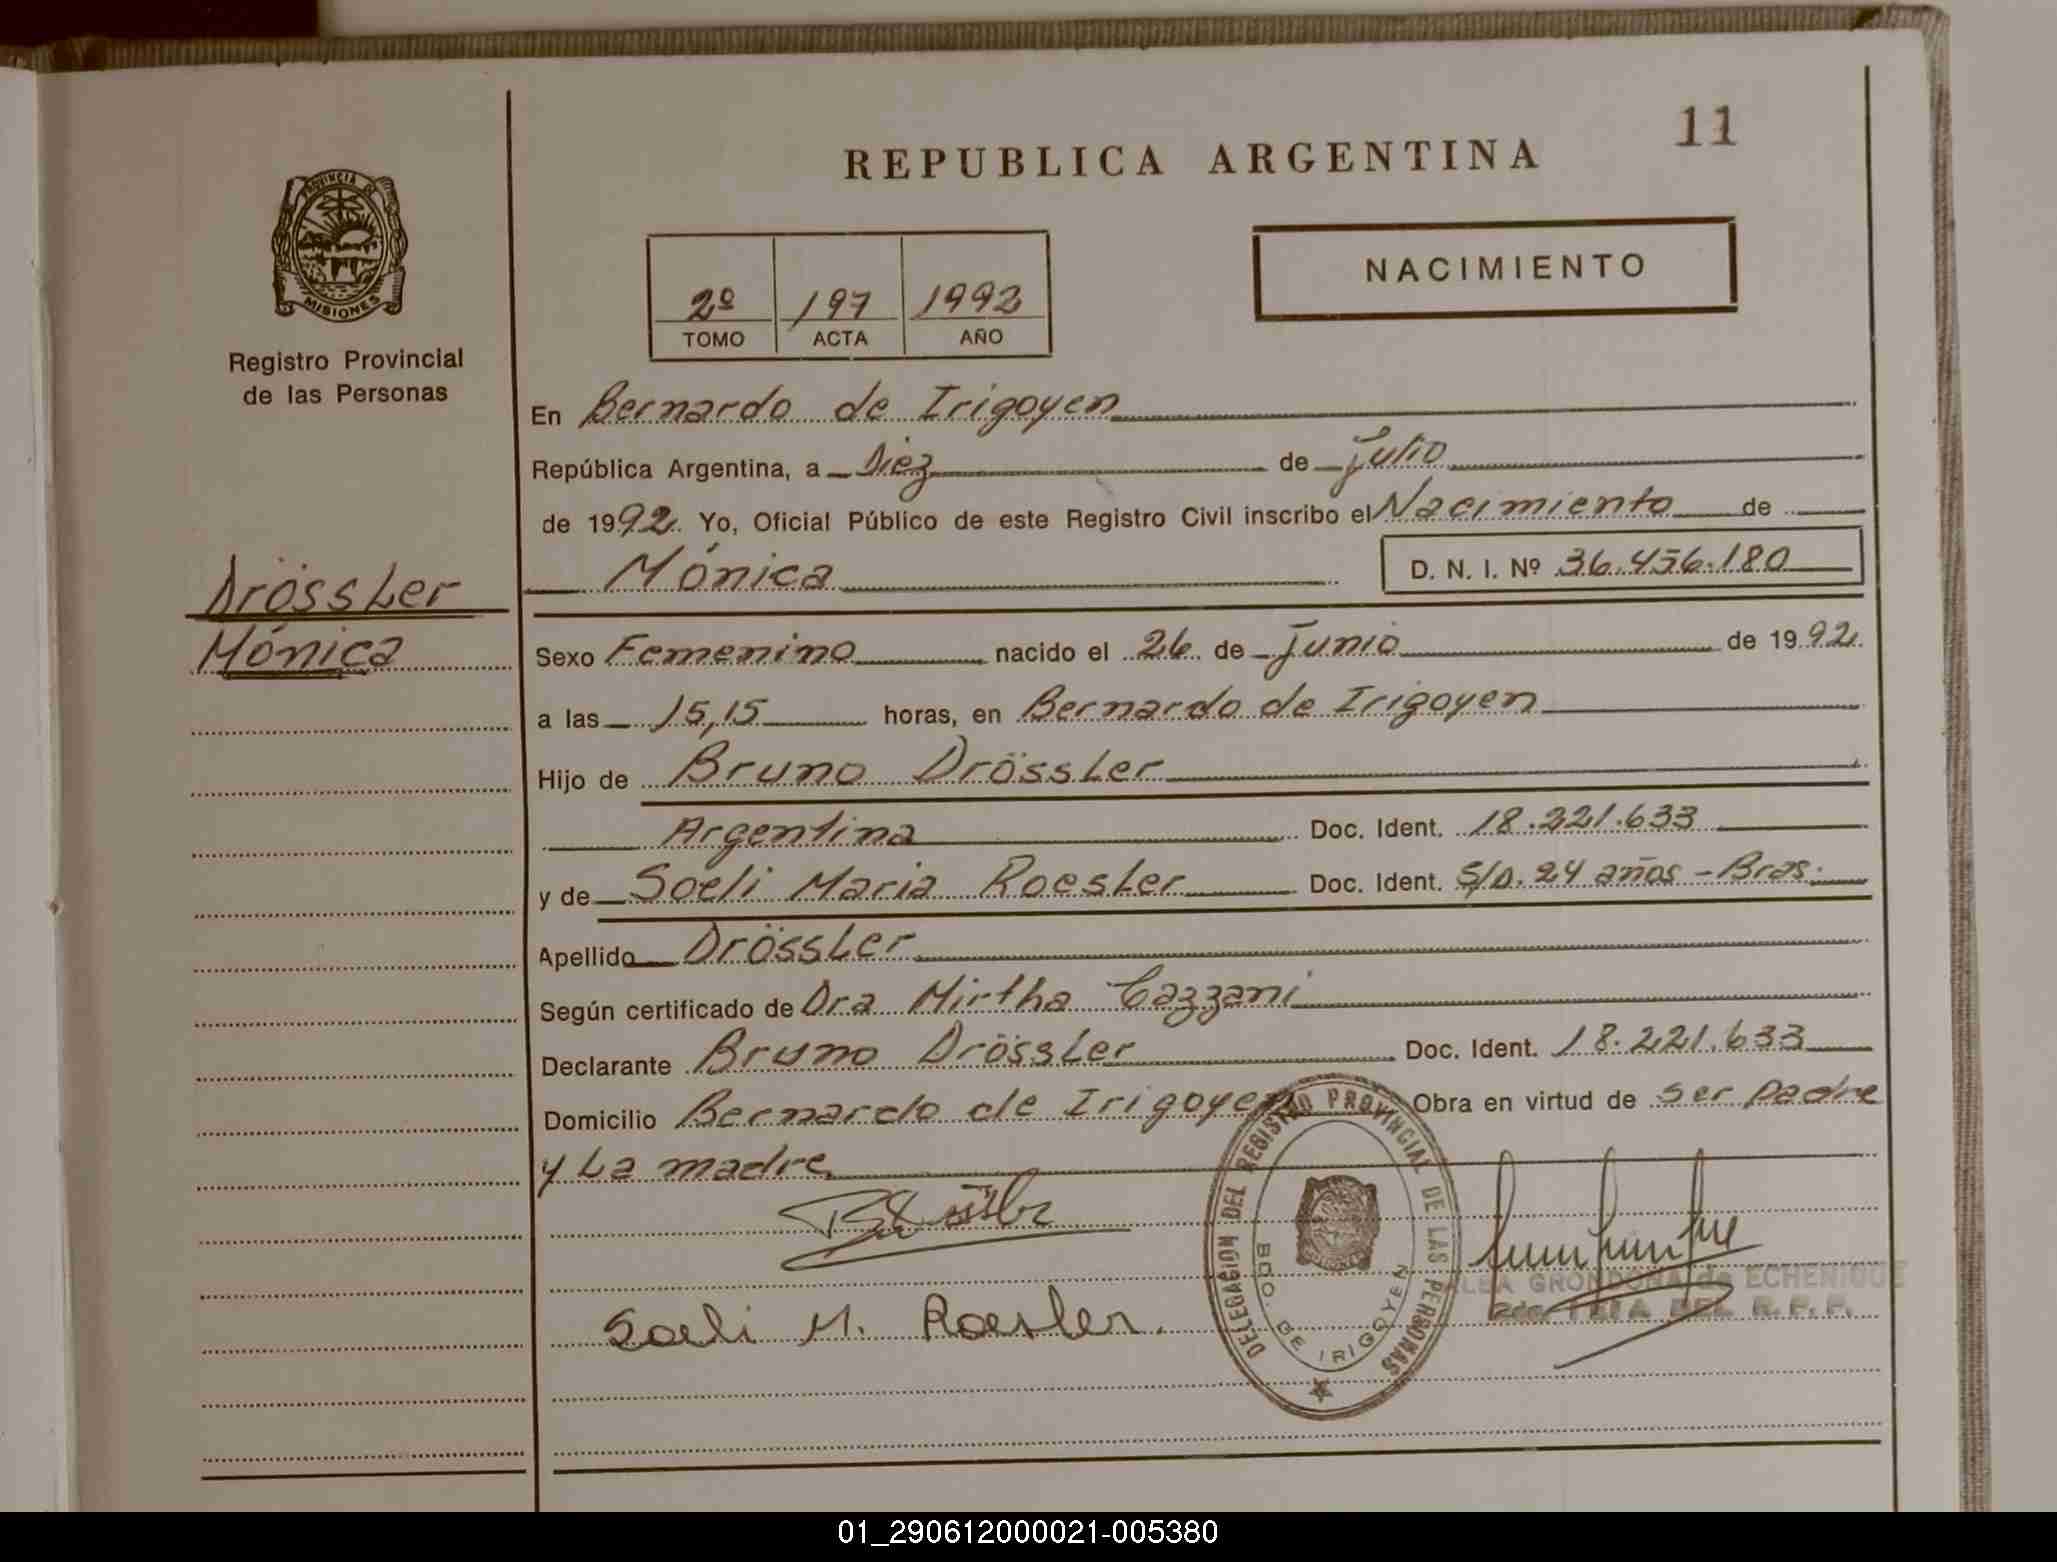 11
REPUBLICA ARGENTINA
PROVINCIA DE
MISIONES
Registro Provincial
de las Personas
NACIMIENTO
2º 197 1992
TOMO ACTA AÑO
En Bernardo de Irigoyen
República Argentina, a Diez de Julio
de 1992. Yo, Oficial Público de este Registro Civil inscribo el Nacimiento de
Mónica D. N. I. Nº 36.456.180
Drössler
Mónica
Sexo Femenino nacido el 26 de Junio de 1992.
a las 15,15 horas, en Bernardo de Irigoyen
Hijo de Bruno Drössler
Argentina Doc. Ident. 18.221.633
y de Soeli Maria Roesler Doc. Ident. S/D. 24 años - Bras.
Apellido Drössler
Según certificado de Dra Mirtha Cazzani
Declarante Bruno Drössler Doc. Ident. 18.221.633
Domicilio Bernardo de Irigoyen Obra en virtud de ser padre
y La madre
DELEGACION DEL REGISTRO PROVINCIAL DE LAS PERSONAS
BDO. DE IRIGOYEN
ALBA GRONDONA de ECHENIQUE
DEL R.P.P.
Soeli M. Roesler.
01_290612000021-005380